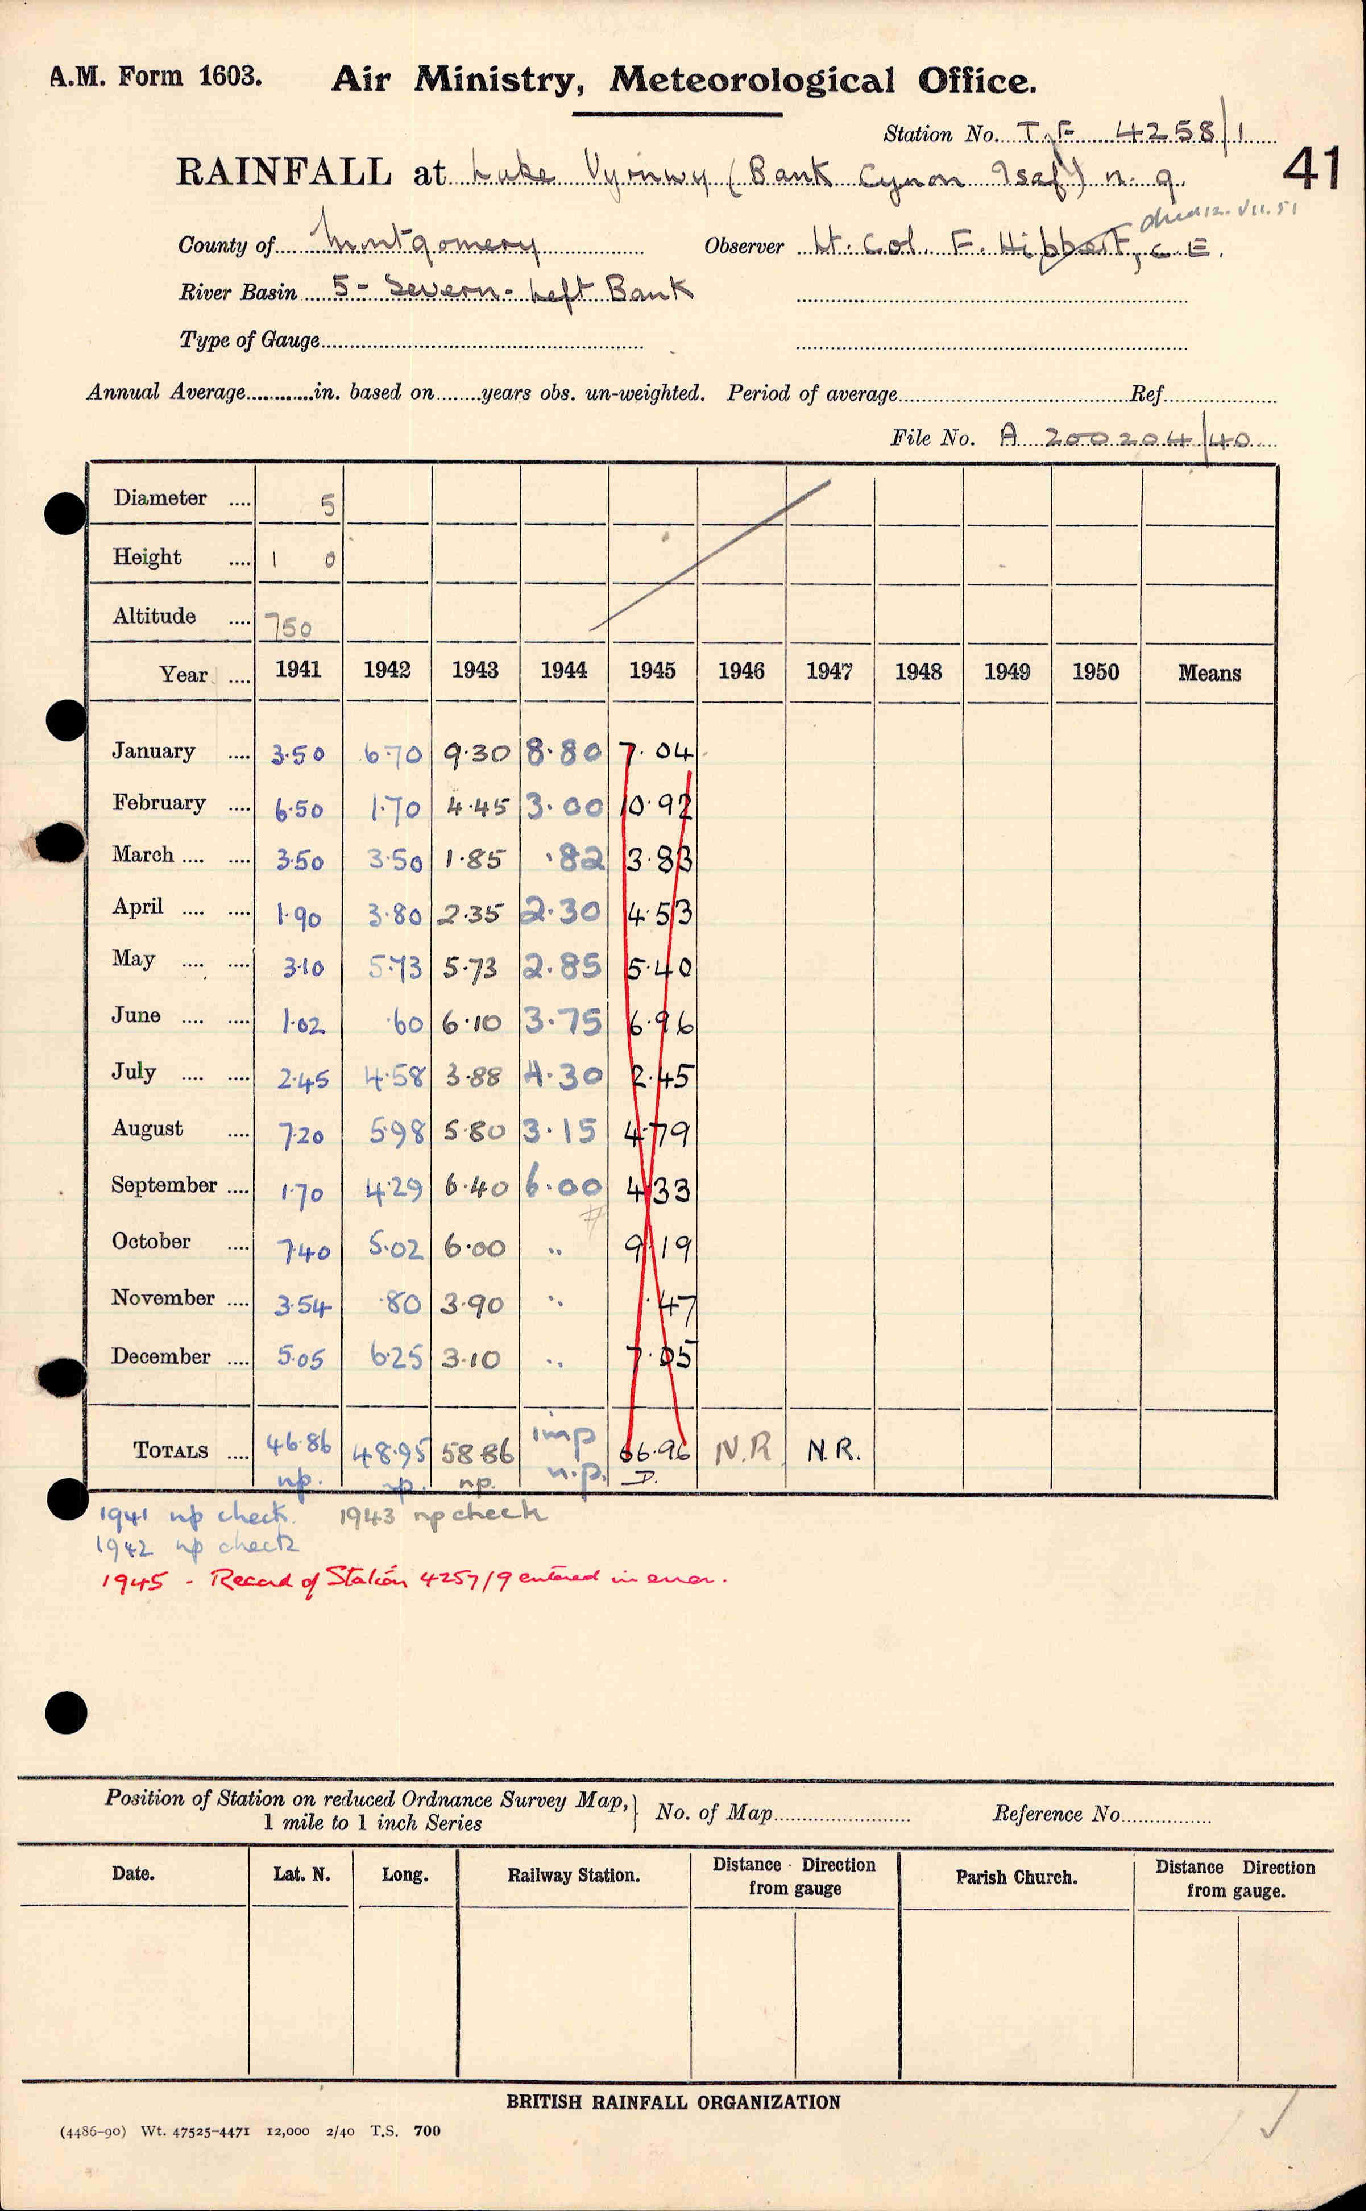 A.M. Form 1603. Air Ministry, Meteorological Office.
Station No. T.F 4258/1
41
RAINFALL at Lake Vyrnwy (Bank Cynon Isaf) n. g.
died 12.VII.51
County of Montgomery Observer Lt. Col. F. Hibbert, C.E.
River Basin 5 - Severn - Left Bank
Type of Gauge
Annual Average in. based on years obs. un-weighted. Period of average Ref.
File No. A 200204/40
Diameter .... 5
Height .... 1 0
Altitude .... 750
Year .... 1941 1942 1943 1944 1945 1946 1947 1948 1949 1950 Means
January .... 3.50 6.70 9.30 8.80 7.04
February .... 6.50 1.70 4.45 3.00 10.92
March .... .... 3.50 3.50 1.85 .82 3.83
April .... .... 1.90 3.80 2.35 2.30 4.53
May .... .... 3.10 5.73 5.73 2.85 5.40
June .... .... 1.02 .60 6.10 3.75 6.96
July .... .... 2.45 4.58 3.88 4.30 2.45
August .... 7.20 5.98 5.80 3.15 4.79
September .... 1.70 4.29 6.40 6.00 4.33
October .... 7.40 5.02 6.00 .. 9.19
November .... 3.54 .80 3.90 .. .47
December .... 5.05 6.25 3.10 .. 7.05
TOTALS .... 46.86 48.95 58.86 imp 66.96 N.R N.R.
np. np. np. n.p. D.
1941 np check. 1943 np check
1942 np check
1945 - Record of Station 4257/9 entered in error.
Position of Station on reduced Ordnance Survey Map, } No. of Map Reference No.
1 mile to 1 inch Series
Date. Lat. N. Long. Railway Station. Distance Direction from gauge Parish Church. Distance Direction from gauge.
BRITISH RAINFALL ORGANIZATION
(4486-90) Wt. 47525-4471 12,000 2/40 T.S. 700